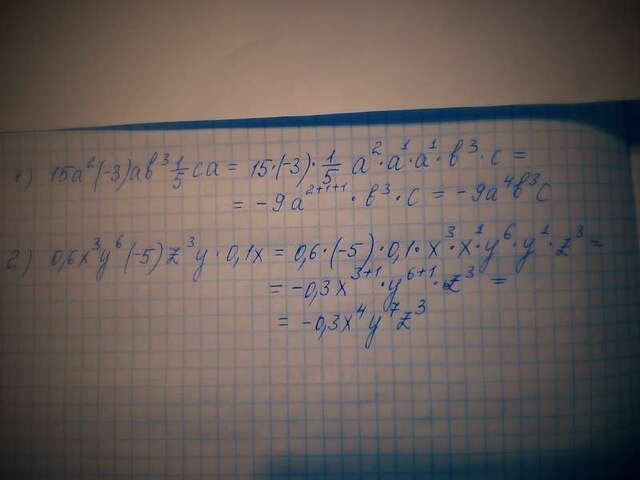 1) 15a²(-3)ab³ 1/5 ca = 15·(-3)· 1/5 a²·a¹·a¹·b³·c =
= -9a²⁺¹⁺¹·b³·c = -9a⁴b³c
2) 0,6x³y⁶(-5)z³y·0,1x = 0,6·(-5)·0,1·x³·x¹·y⁶·y¹·z³ =
= -0,3x³⁺¹·y⁶⁺¹·z³ =
= -0,3x⁴y⁷z³